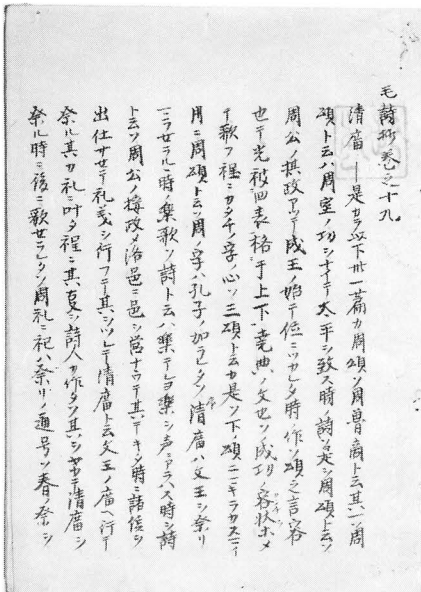 毛詩抄巻之十九
清庿―是カラ以下卅一篇カ周頌ソ周魯商ト云其一ソ周
頌ト云ハ周室ノ功シナイテ太平シ致ス時ノ詩ソ是シ周頌ト云ソ
周公ノ摂政アツテ成王ノ始テ位ニツカレタ時作ソ頌之言容
也テ光被四表格于上下ハ堯典ノ文也ソ成功ノ容状ホメ
テ歌フ程ニカタチノ字ノ心ソ三頌ト云カ是ソ下ノ頌ニキラカスニイ
用ニ周頌ト云ソ周ノ字ハ孔子ノ加ラレタソ清庿ハ文王シ祭リ
ニラせラルヽ時ノ楽歌ソ詩ト云ハ楽テヨ楽シ声ニアラハス時シ詩
ト云ソ周公ノ摂政メ洛邑ニ邑シ営ナツテ其テキタ時ニ諸侯シ
出仕サせテ礼義シ行フニ其シツレテ清庿ト云文王ノ庿ヘ行テ
祭ル其カ礼ニ叶タ程ニ其支シ詩人カ作タソ其シヤカテ清庿シ
祭ル時ニ後ニ歌せラレタソ周礼ニ祀ハ祭リノ通号ソ春ノ祭シ